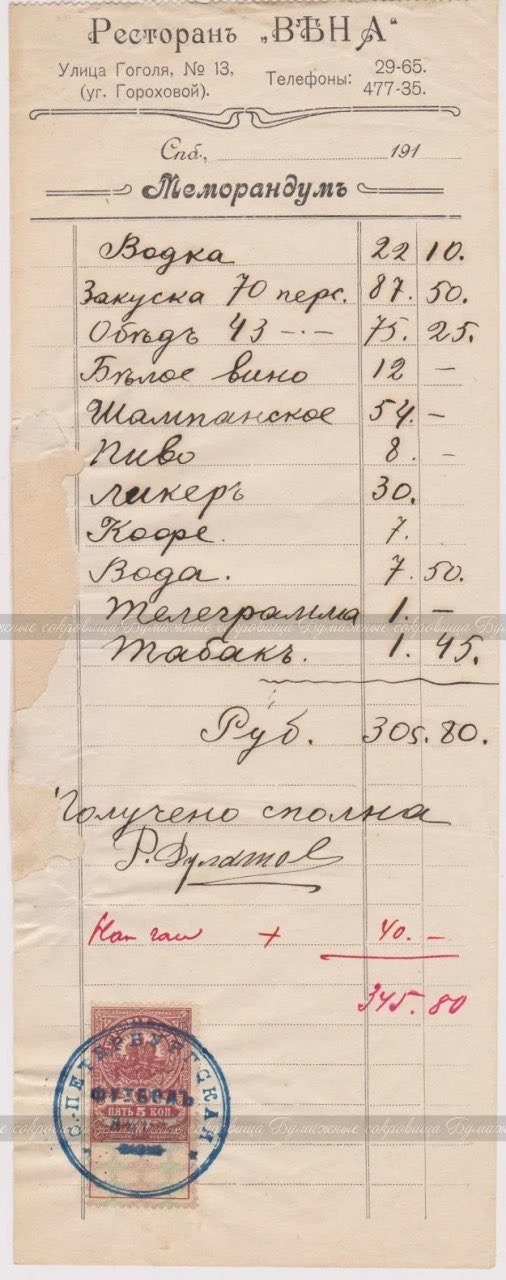 Ресторанъ „ВѢНА“
Улица Гоголя, № 13,
(уг. Гороховой).
Телефоны: 29-65.
477-35.
Спб., 191
Меморандумъ
Водка 22 10.
Закуска 70 перс. 87. 50.
Обѣдъ 43 -·- 75. 25.
Бѣлое вино 12 -
Шампанское 54. -
Пиво 8. -
Ликеръ 30.
Кофе. 7.
Вода. 7. 50.
Телеграмма 1. -
Табакъ. 1. 45.
Руб. 305. 80.
Получено сполна
На чаи + 40. -
345. 80
С.-ПЕТЕРБУРГСКАЯ
ФУТБОЛЪ
ПЯТЬ 5 КОП
Бумажные сокровища Бумажные сокровища
Бумажные сокровища Бумажные сокровища